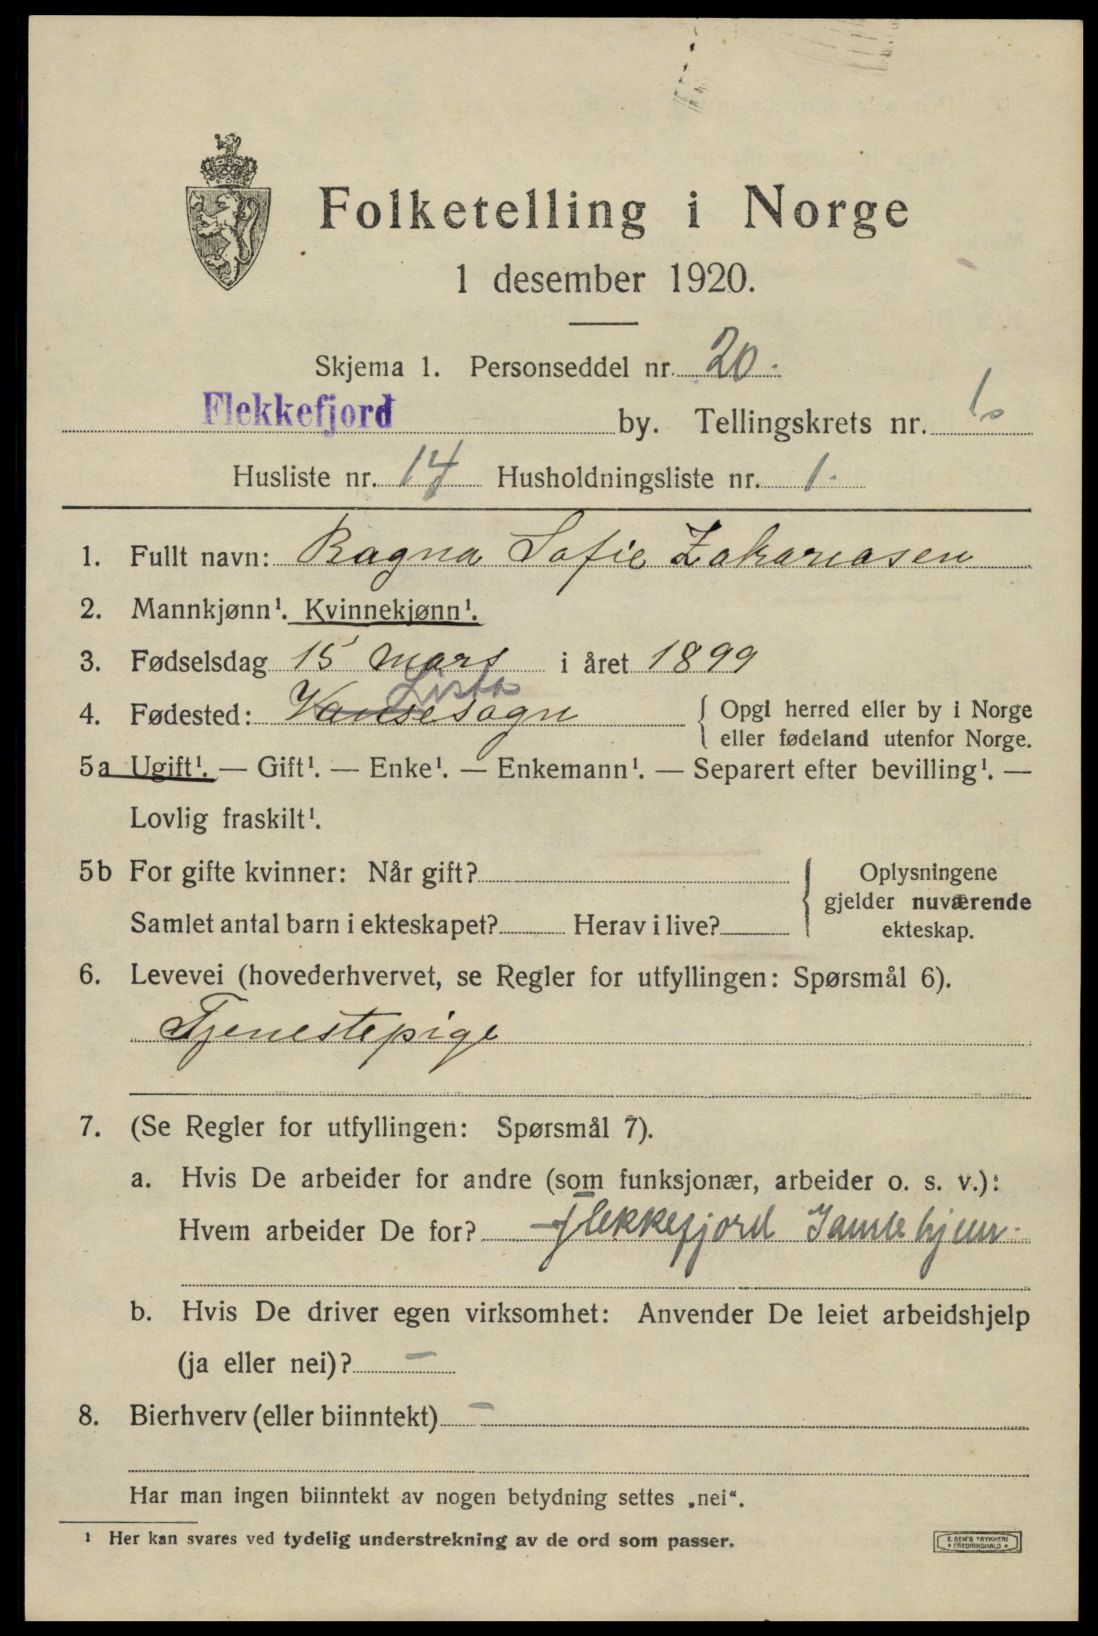 Folketelling i Norge
1 desember 1920.
Skjema 1. Personseddel nr. 20.
Flekkefjord by. Tellingskrets nr. 1.
Husliste nr. 14 Husholdningsliste nr. 1.
1. Fullt navn: Ragna Sofie Zakariasen
2. Mannkjønn¹. Kvinnekjønn¹.
3. Fødselsdag 15 mars i året 1899
Lista
4. Fødested: Vanse sogn { Opgi herred eller by i Norge
eller fødeland utenfor Norge.
5a Ugift¹. — Gift¹. — Enke¹. — Enkemann¹. — Separert efter bevilling¹. —
Lovlig fraskilt¹.
5b For gifte kvinner: Når gift?
Samlet antal barn i ekteskapet? Herav i live?
Oplysningene
gjelder nuværende
ekteskap.
6. Levevei (hovederhvervet, se Regler for utfyllingen: Spørsmål 6).
Tjenestepige
7. (Se Regler for utfyllingen: Spørsmål 7).
a. Hvis De arbeider for andre (som funksjonær, arbeider o. s. v.):
Hvem arbeider De for? Flekkefjord Gamlehjem.
b. Hvis De driver egen virksomhet: Anvender De leiet arbeidshjelp
(ja eller nei)? —
8. Bierhverv (eller biinntekt) —
Har man ingen biinntekt av nogen betydning settes „nei“.
¹ Her kan svares ved tydelig understrekning av de ord som passer.
E. SEM'S TRYKKERI
FREDRIKSHALD